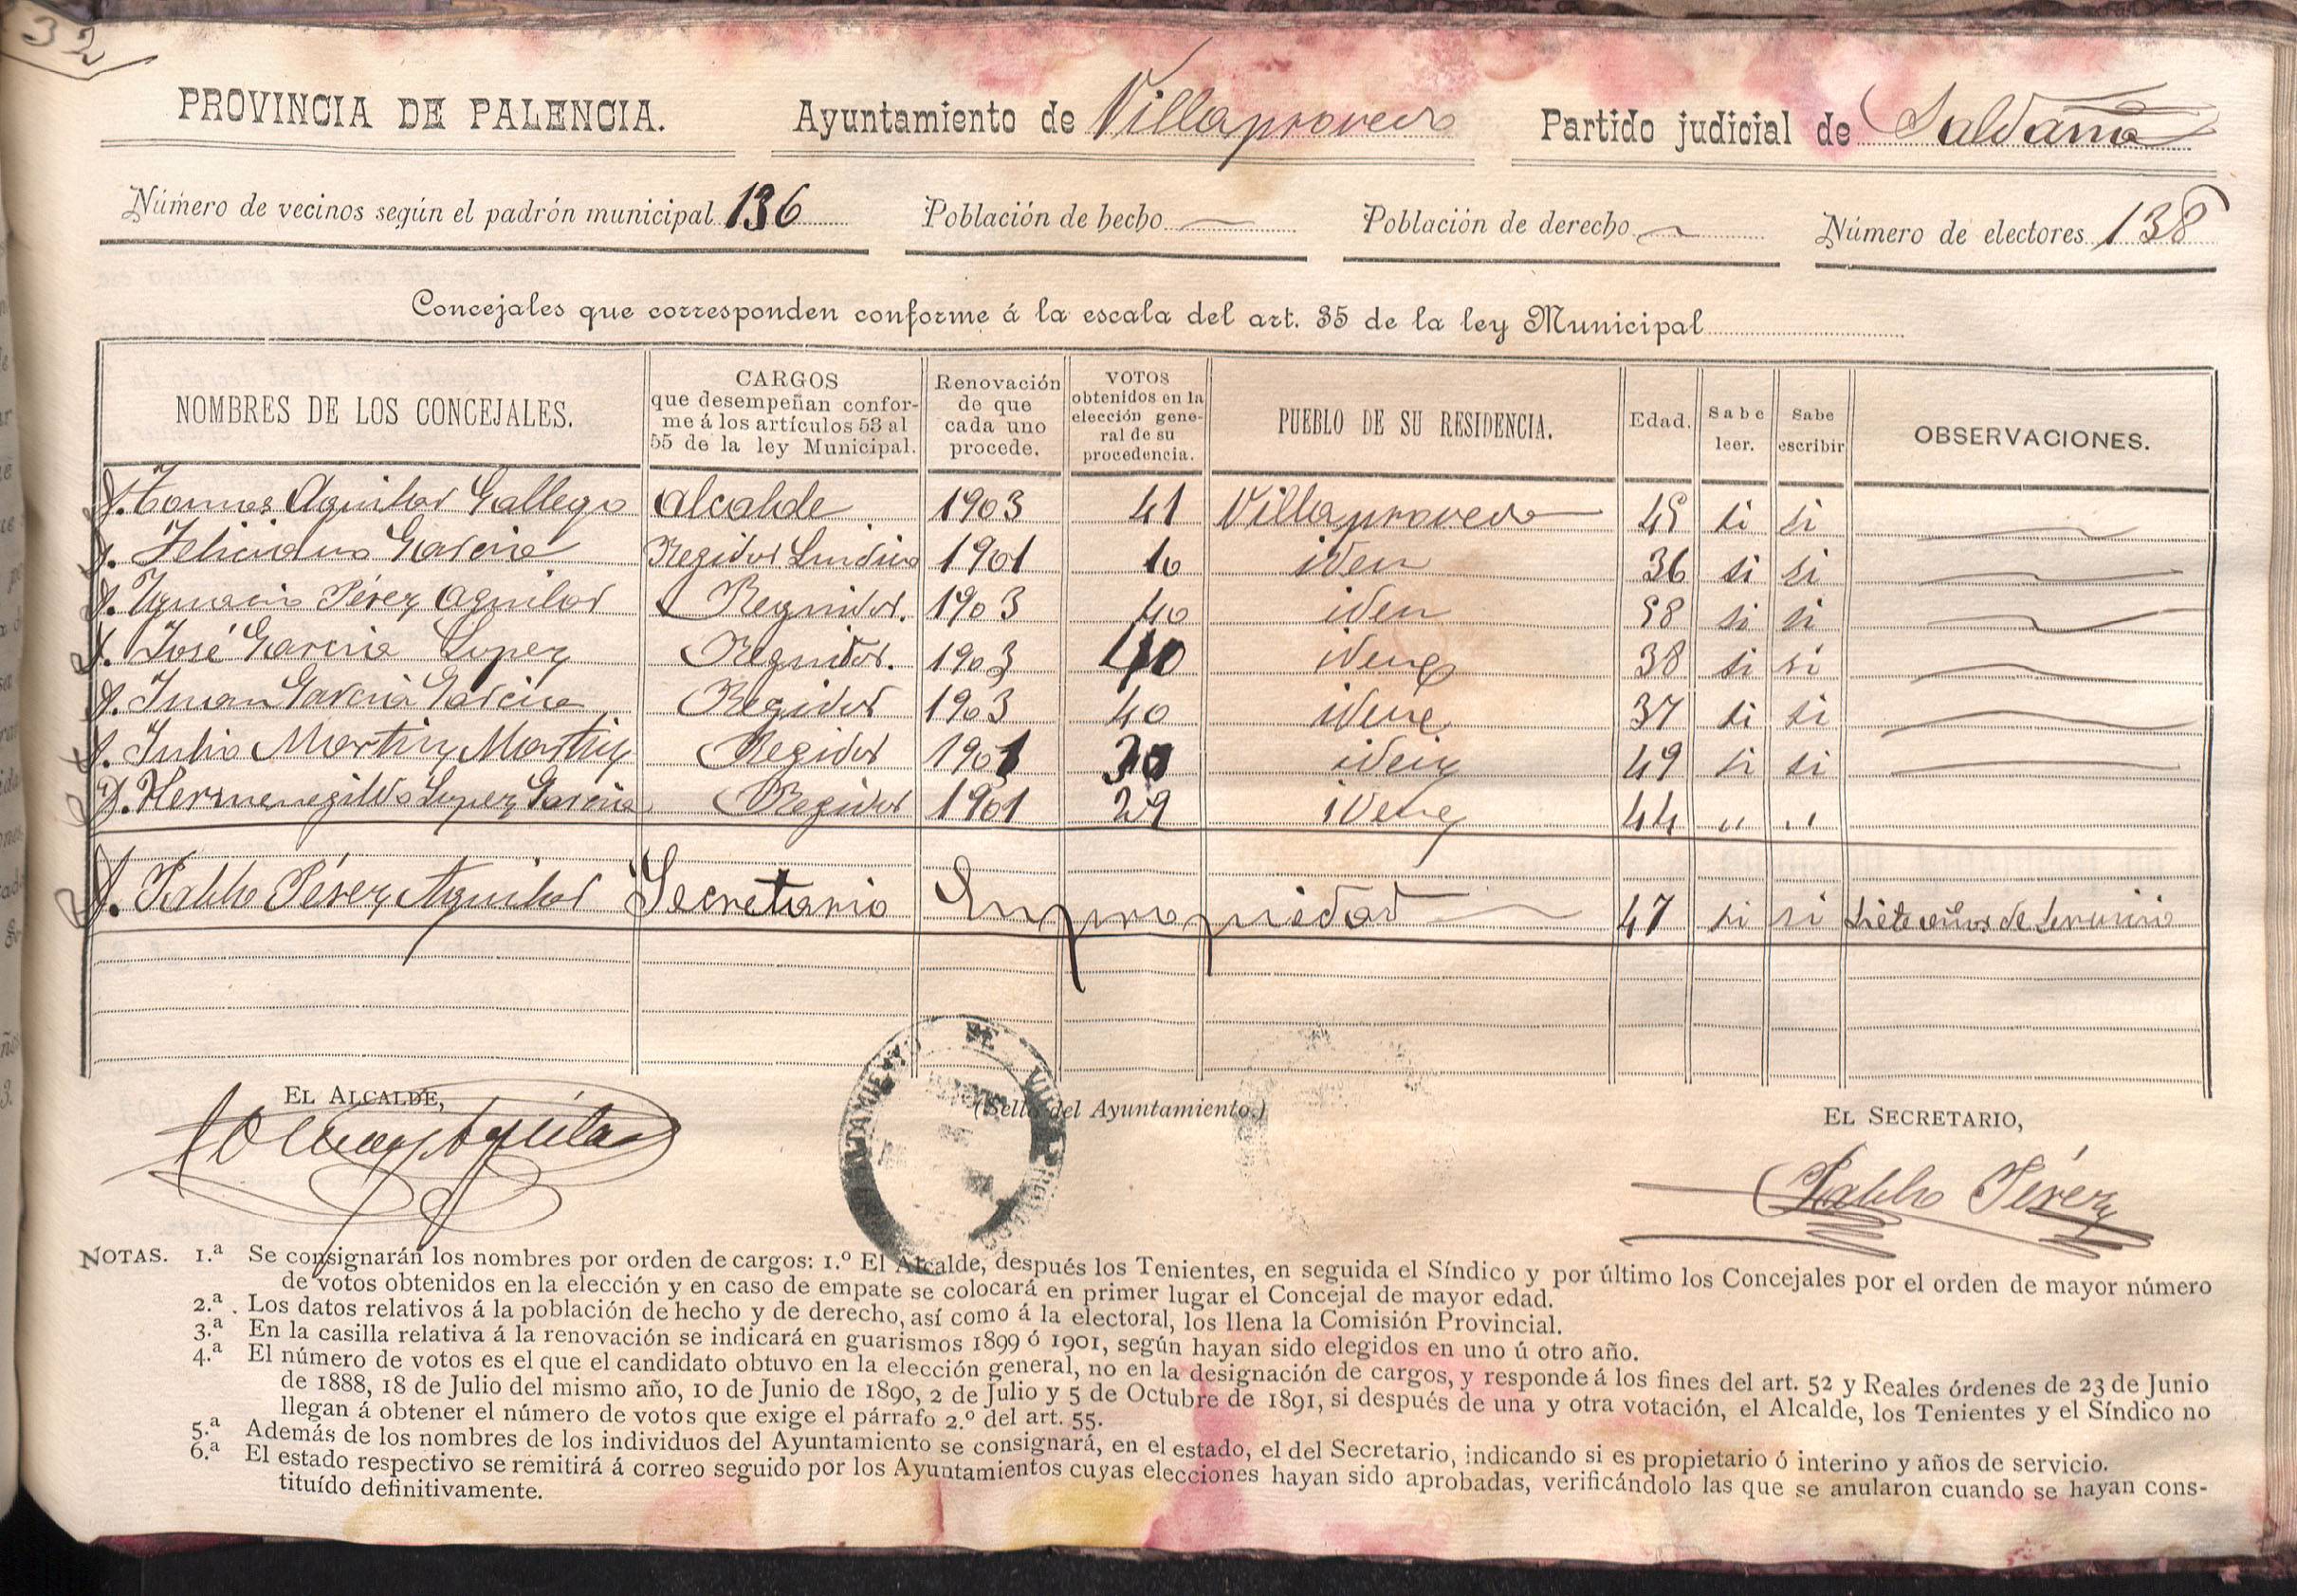 32
PROVINCIA DE PALENCIA. Ayuntamiento de Villaprovedo Partido judicial de Saldaña
Número de vecinos según el padrón municipal 136 Población de hecho Población de derecho Número de electores 138
Concejales que corresponden conforme á la escala del art. 35 de la ley Municipal
NOMBRES DE LOS CONCEJALES. CARGOS que desempeñan conforme á los artículos 53 al 55 de la ley Municipal. Renovación de que cada uno procede. VOTOS obtenidos en la elección general de su procedencia. PUEBLO DE SU RESIDENCIA. Edad. Sabe leer. Sabe escribir OBSERVACIONES.
D. Tomas Aguilar Gallego Alcalde 1903 41 Villaprovedo 45 si si
D. Feliciano Garcia Regidor Sindico 1901 10 iden 36 si si
D. Ygnacio Pérez Aguilar Regidor. 1903 40 iden 58 si si
D. José Garcia Lopez Regidor. 1903 40 idem 38 si si
D. Juan Garcia Garcia Regidor 1903 40 idem 37 si si
D. Julio Martin Martin Regidor 1901 30 idem 49 si si
D. Hermenegildo Lopez Garcia Regidor 1901 29 idem 44 " "
D. Pablo Pérez Aguilar Secretario En propiedad 47 si si siete años de servicio
EL ALCALDE, (Sello del Ayuntamiento.) EL SECRETARIO,
Tomas Aguilar Pablo Pérez
NOTAS. 1.ª Se consignarán los nombres por orden de cargos: 1.º El Alcalde, después los Tenientes, en seguida el Síndico y por último los Concejales por el orden de mayor número
de votos obtenidos en la elección y en caso de empate se colocará en primer lugar el Concejal de mayor edad.
2.ª Los datos relativos á la población de hecho y de derecho, así como á la electoral, los llena la Comisión Provincial.
3.ª En la casilla relativa á la renovación se indicará en guarismos 1899 ó 1901, según hayan sido elegidos en uno ú otro año.
4.ª El número de votos es el que el candidato obtuvo en la elección general, no en la designación de cargos, y responde á los fines del art. 52 y Reales órdenes de 23 de Junio
de 1888, 18 de Julio del mismo año, 10 de Junio de 1890, 2 de Julio y 5 de Octubre de 1891, si después de una y otra votación, el Alcalde, los Tenientes y el Síndico no
llegan á obtener el número de votos que exige el párrafo 2.º del art. 55.
5.ª Además de los nombres de los individuos del Ayuntamiento se consignará, en el estado, el del Secretario, indicando si es propietario ó interino y años de servicio.
6.ª El estado respectivo se remitirá á correo seguido por los Ayuntamientos cuyas elecciones hayan sido aprobadas, verificándolo las que se anularon cuando se hayan cons-
tituído definitivamente.